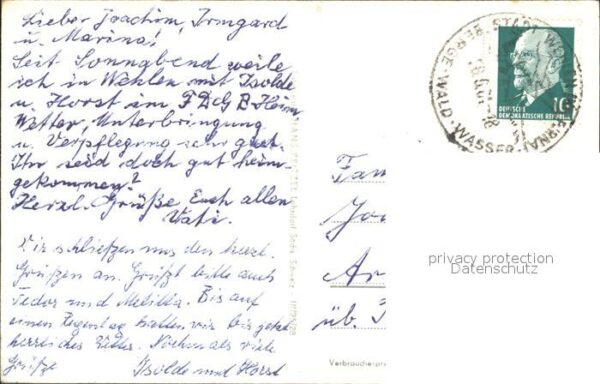 Lieber Joachim, Irmgard
u. Marina!
Seit Sonnabend weile
ich in Wehlen mit Isolde
u. Horst im FDGB Heim
Wetter, Unterbringung
u. Verpflegung sehr gut.
Ihr seid doch gut heim-
gekommen?
Herzl. Grüße Euch allen
Vati.
Wir schließen uns den herzl.
Grüßen an. Grüßt bitte auch
und Bis auf
einen Regentag hatten wir bis jetzt
herrliches Wetter. Nochmals viele
Grüße Isolde und Horst
STADT WEHLEN
BERGE · WALD · WASSER
10
DEUTSCHE
DEMOKRATISCHE REPUBLIK
Fam
Jo
Ar
üb.
privacy protection
Datenschutz
Verbraucherpre